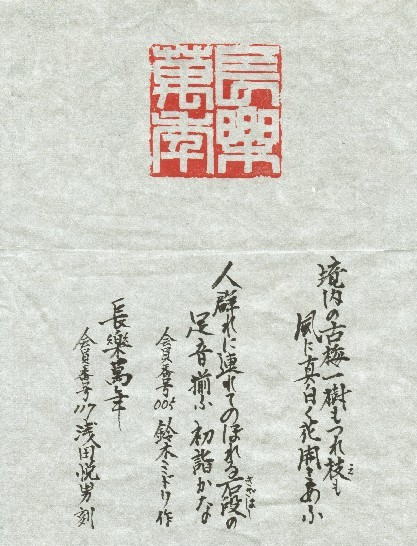 長樂萬年
境内の古梅一樹もつれ枝も
風に真白く花開きあふ
人群れに連れてのぼれる石段の
足音揃ふ初詣かな
会員番号005 鈴木ミドリ作
長樂萬年
会員番号117 浅田悦男 刻